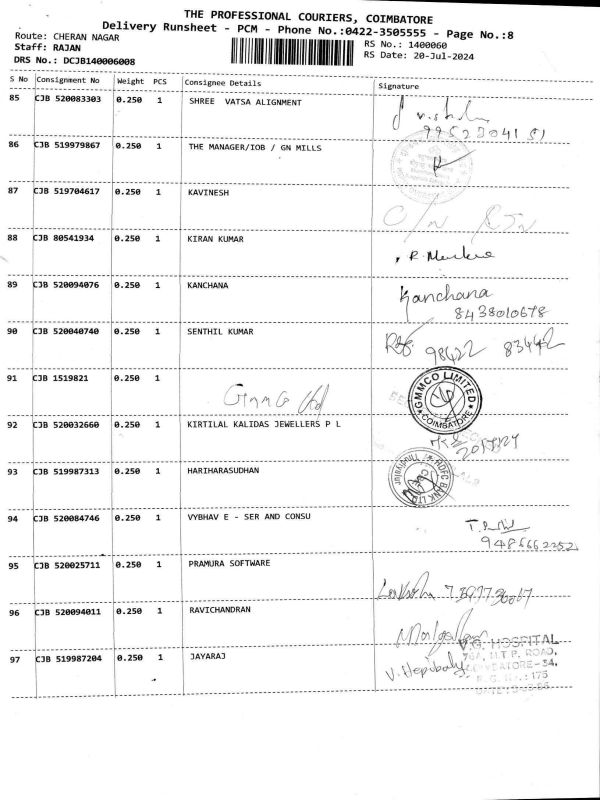 THE PROFESSIONAL COURIERS, COIMBATORE
Delivery Runsheet - PCM - Phone No.:0422-3505555 - Page No.:8
Route: CHERAN NAGAR
Staff: RAJAN
DRS No.: DCJB140006008
RS No.: 1400060
RS Date: 20-Jul-2024
S No Consignment No Weight PCS Consignee Details Signature
85 CJB 520083303 0.250 1 SHREE VATSA ALIGNMENT
9952304151
86 CJB 519979867 0.250 1 THE MANAGER/IOB / GN MILLS
87 CJB 519704617 0.250 1 KAVINESH
88 CJB 80541934 0.250 1 KIRAN KUMAR
89 CJB 520094076 0.250 1 KANCHANA Kanchana
8438010678
90 CJB 520040740 0.250 1 SENTHIL KUMAR 98422 83442
91 CJB 1519821 0.250 1 GMMCO LIMITED
COIMBATORE
92 CJB 520032660 0.250 1 KIRTILAL KALIDAS JEWELLERS P L
93 CJB 519987313 0.250 1 HARIHARASUDHAN HDFC BANK LTD
94 CJB 520084746 0.250 1 VYBHAV E - SER AND CONSU
9486662252
95 CJB 520025711 0.250 1 PRAMURA SOFTWARE
96 CJB 520094011 0.250 1 RAVICHANDRAN
V.G. HOSPITAL
97 CJB 519987204 0.250 1 JAYARAJ M.T.P. ROAD,